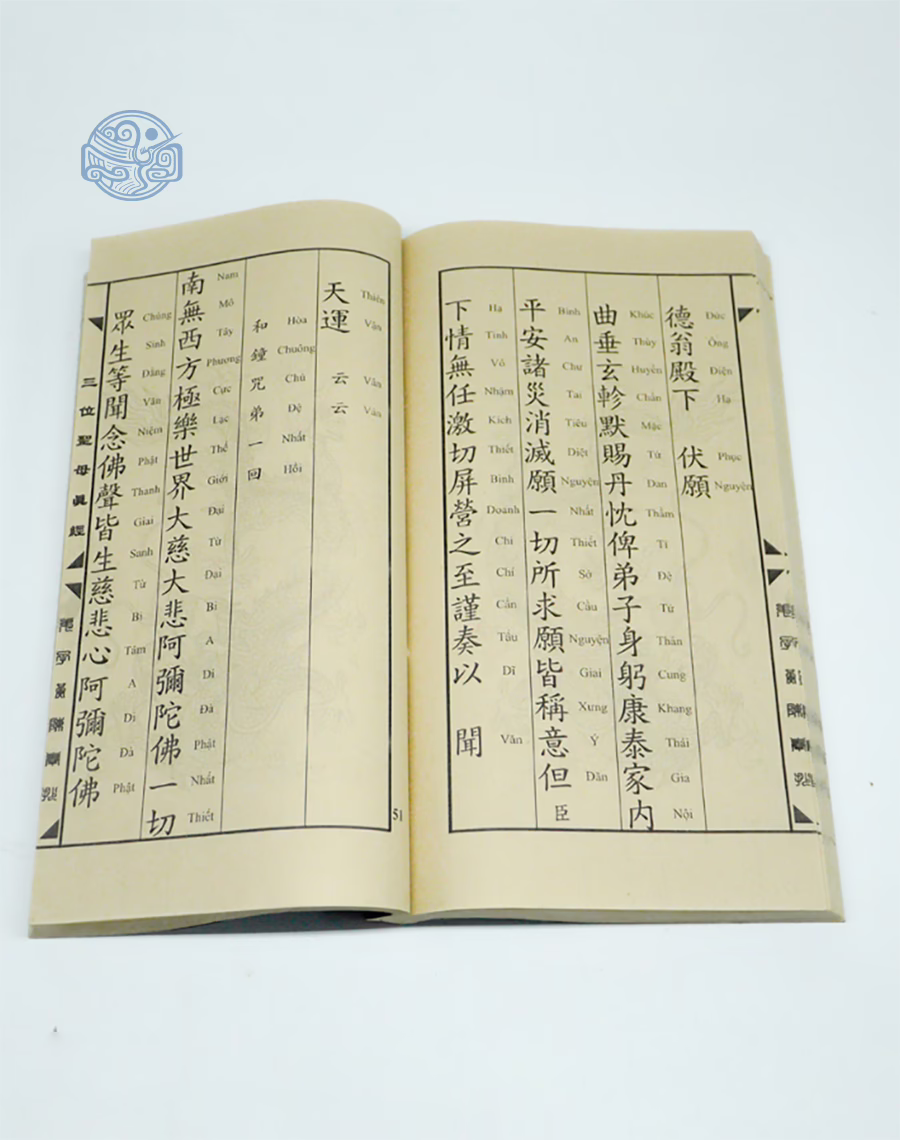 德翁殿下 伏願
Đức Ông Điện Hạ Phục Nguyện
曲垂玄軫默賜丹忱俾弟子身躬康泰家内
Khúc Thùy Huyền Chẩn Mặc Tứ Đan Thầm Tỉ Đệ Tử Thân Cung Khang Thái Gia Nội
平安諸災消滅願一切所求願皆稱意但臣
Bình An Chư Tai Tiêu Diệt Nguyện Nhất Thiết Sở Cầu Nguyện Giai Xưng Ý Dãn
下情無任激切屏營之至謹奏以 聞
Hạ Tình Vô Nhậm Kích Thiết Bình Doanh Chi Chí Cẩn Tấu Dĩ Văn
天運 云云
Thiên Vận Vân Vân
和鐘咒弟一回
Hòa Chuông Chú Đệ Nhất Hồi
南無西方極樂世界大慈大悲阿彌陀佛一切
Nam Mô Tây Phương Cực Lạc Thế Giới Đại Từ Đại Bi A Di Đà Phật Nhất Thiết
眾生等聞念佛聲皆生慈悲心阿彌陀佛
Chúng Sinh Đẳng Văn Niệm Phật Thanh Giai Sanh Từ Bi Tâm A Di Đà Phật
三位聖母眞經
51